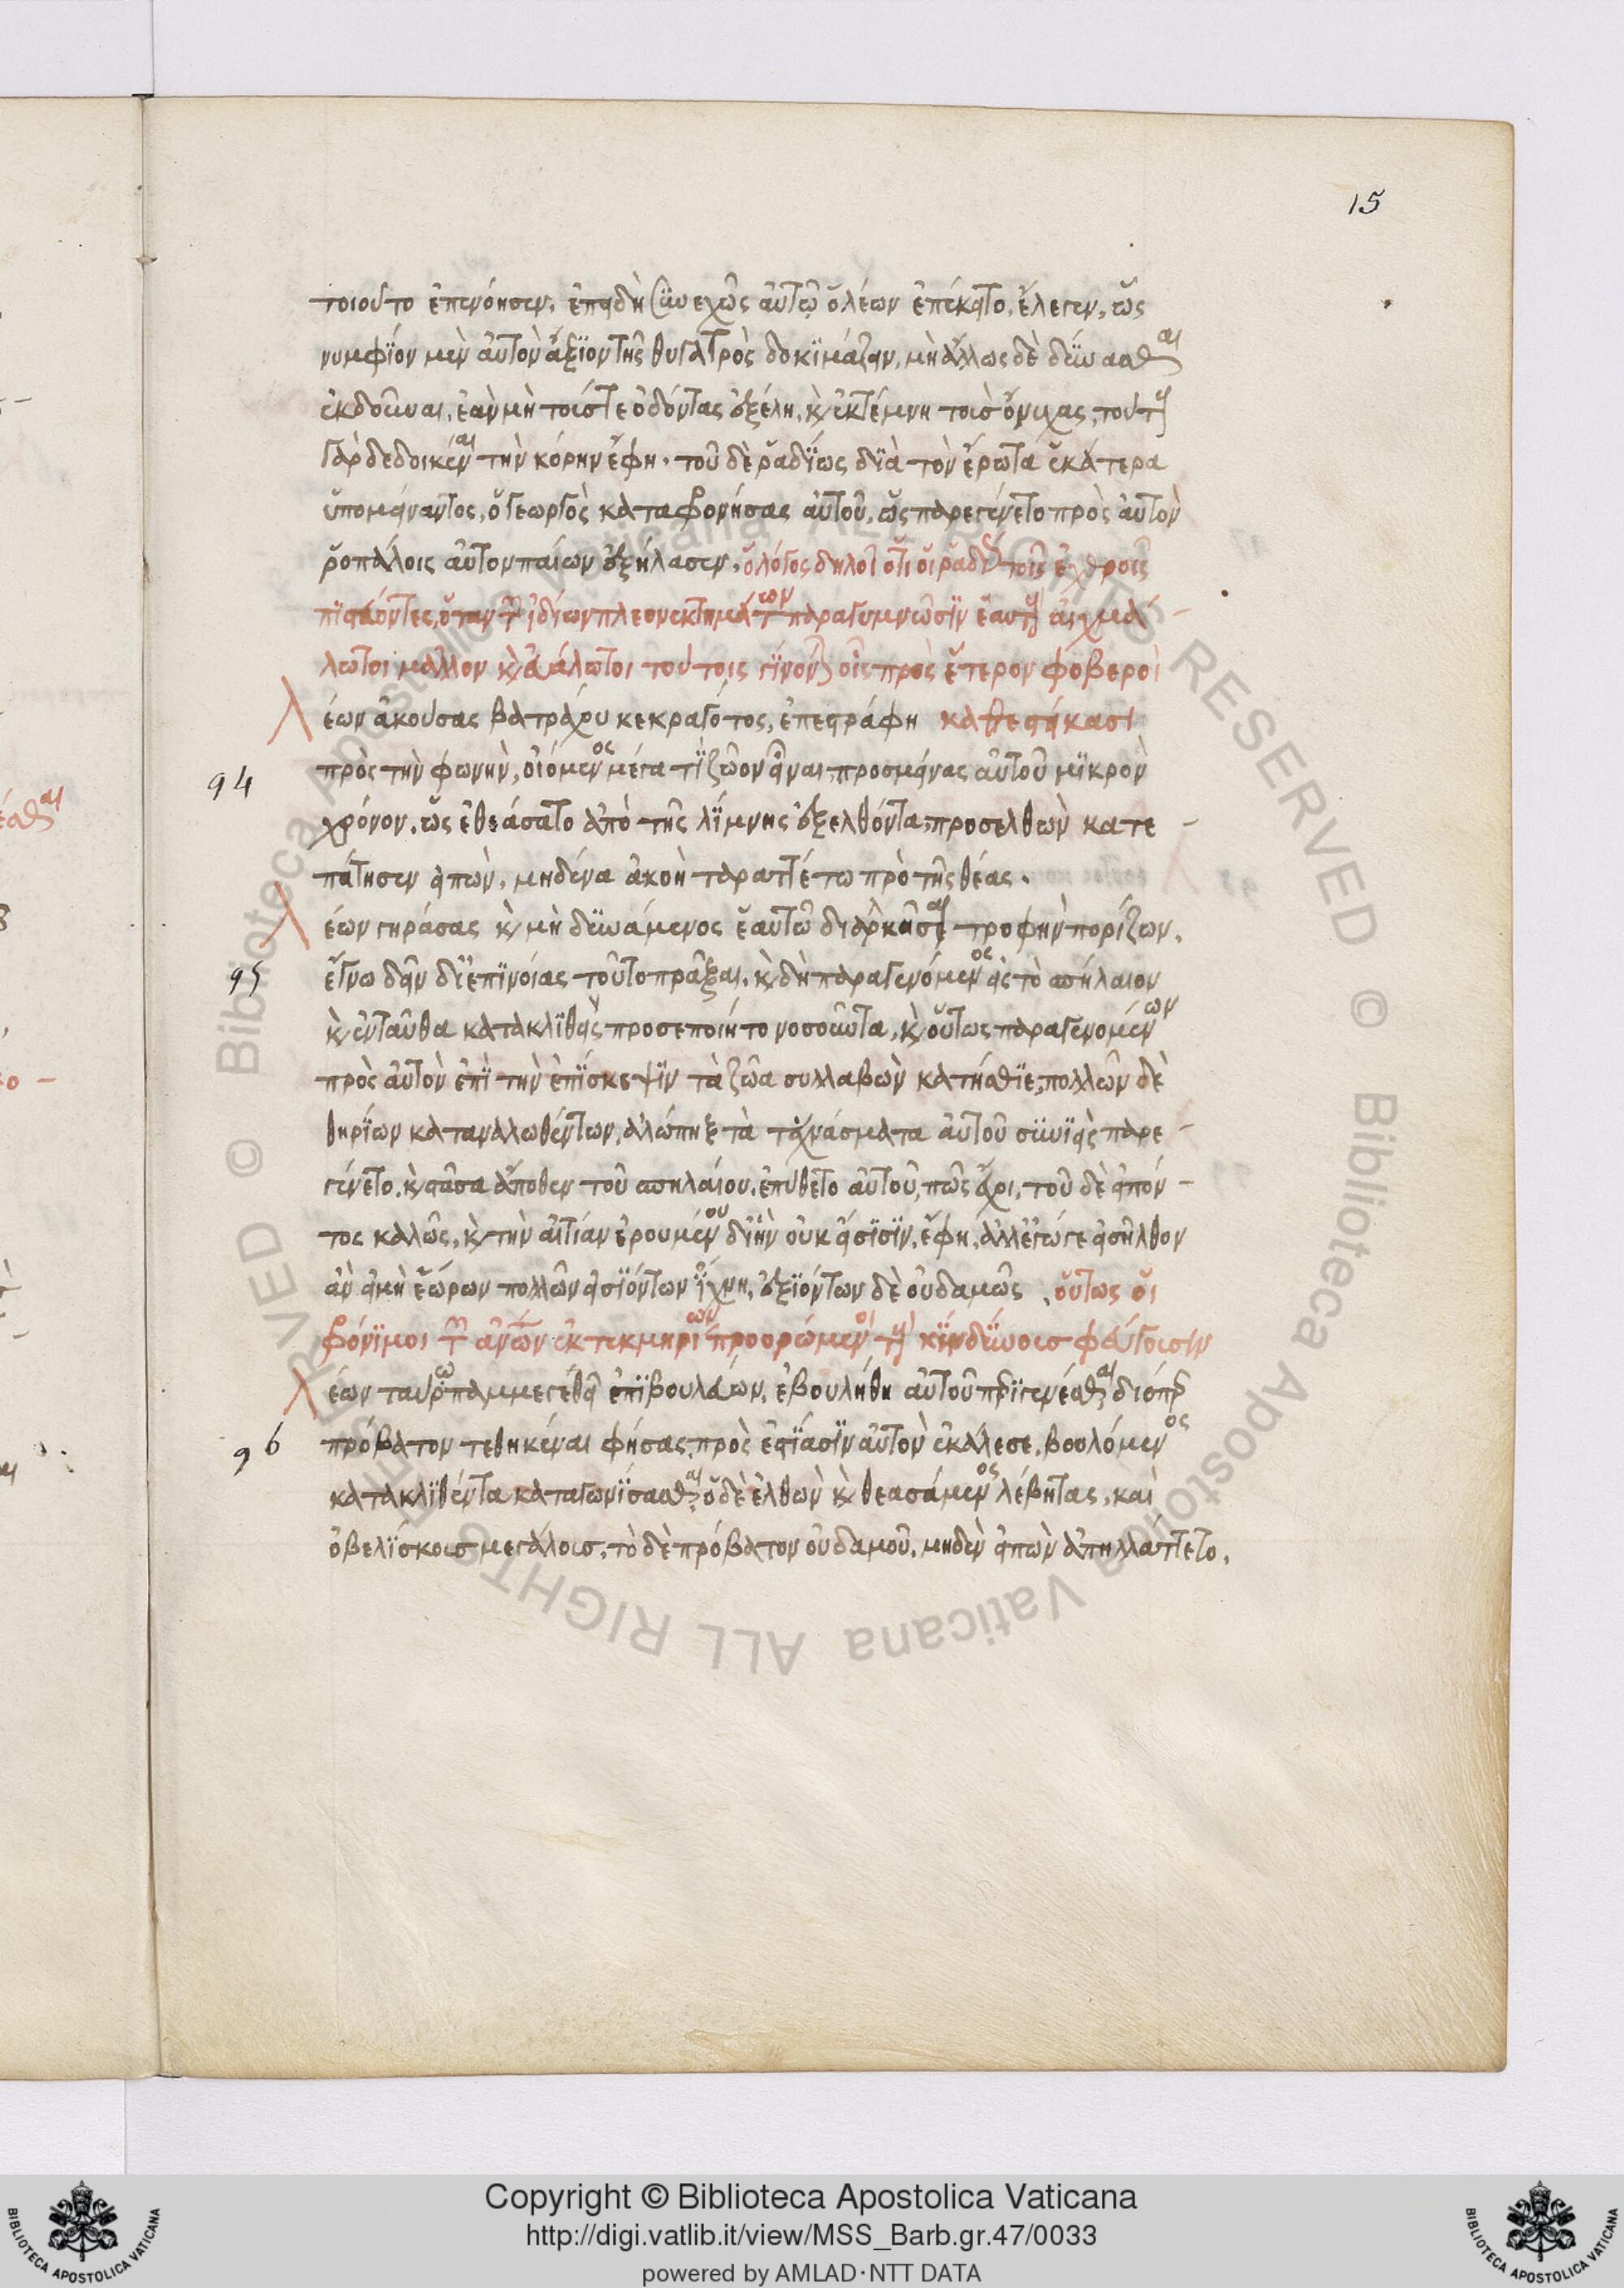 15
τοιοῦτο ἐπενόησεν. ἐπειδὴ συνεχῶς αὐτῷ ὁ λέων ἐπέκειτο, ἔλεγεν, ὡς
νυμφίον μὲν αὐτὸν ἄξιον τῆς θυγατρὸς δοκιμάζειν, μὴ ἄλλως δὲ δύνασθαι
ἐκδοῦναι, ἐὰν μὴ τούς τε ὀδόντας ἐξέλῃ, καὶ ἐκτέμνῃ τοὺς ὄνυχας, τούτους
γὰρ δεδοικέναι τὴν κόρην ἔφη. τοῦ δὲ ῥαδίως διὰ τὸν ἔρωτα ἑκάτερα
ὑπομείναντος, ὁ γεωργὸς καταφρονήσας αὐτοῦ, ὡς παρεγένετο πρὸς αὐτὸν
ῥοπάλοις αὐτὸν παίων ἐξήλασεν. ὁ λόγος δηλοῖ ὅτι οἱ ῥαδίως τοῖς ἐχθροῖς
πιστεύοντες, ὅταν τῶν ἰδίων πλεονεκτημάτων παραγυμνῶσιν ἑαυτοὺς αἰχμά-
λωτοι μᾶλλον καὶ εὐάλωτοι τούτοις γίνονται οἷς πρὸς ἕτερον φοβεροὶ
λέων ἀκούσας βατράχου κεκραγότος, ἐπεστράφη καθεστήκασι
94 πρὸς τὴν φωνὴν, οἰόμενος μέγα τι ζῶον εἶναι, προσμείνας αὐτοῦ μικρὸν
χρόνον, ὡς ἐθεάσατο ἀπὸ τῆς λίμνης ἐξελθόντα, προσελθὼν κατε-
πάτησεν εἰπών, μηδένα ἀκοὴ ταραττέτω πρὸ τῆς θέας.
λέων γηράσας καὶ μὴ δυνάμενος ἑαυτῷ τροφὴν πορίζων,
95 ἔγνω δεῖν δι' ἐπινοίας τοῦτο πρᾶξαι. καὶ δὴ παραγενόμενος εἰς τὸ σπήλαιον
καὶ ἐνταῦθα κατακλιθεὶς προσεποιεῖτο νοσοῦντα, καὶ οὕτως παραγενομένων
πρὸς αὐτὸν ἐπὶ τὴν ἐπίσκεψιν τὰ ζῶα συλλαβὼν κατήσθιε, πολλῶν δὲ
θηρίων καταναλωθέντων, ἀλώπηξ τὰ τεχνάσματα αὐτοῦ συνιεὶς παρε-
γένετο. καὶ στᾶσα ἄποθεν τοῦ σπηλαίου, ἐπύθετο αὐτοῦ, πῶς ἔχοι, τοῦ δὲ εἰπόν-
τος καλῶς, καὶ τὴν αἰτίαν ἐρουμένου δι' ἣν οὐκ εἴσισιν, ἔφη, ἀλλ' ἔγωγε εἰσῆλθον
ἂν εἰ μὴ ἑώρων πολλῶν εἰσιόντων ἴχνη, ἐξιόντων δὲ οὐδαμῶς. οὕτως οἱ
φρόνιμοι τῶν ἀνθρώπων ἐκ τεκμηρίων προορώμενοι τοὺς κινδύνους φεύγουσιν
λέων ταύρῳ παμμεγέθει ἐπιβουλεύων, ἐβουλήθη αὐτοῦ περιγενέσθαι διόπερ
96 πρόβατον τεθηκέναι φήσας, πρὸς ἑστίασιν αὐτὸν ἐκάλεσε, βουλόμενος
κατακλιθέντα καταγωνίσασθαι. ὁ δὲ ἐλθὼν καὶ θεασάμενος λέβητας, καὶ
ὀβελίσκους μεγάλους, τὸ δὲ πρόβατον οὐδαμοῦ, μηδὲν εἰπὼν ἀπηλλάττετο.
Copyright © Biblioteca Apostolica Vaticana
http://digi.vatlib.it/view/MSS_Barb.gr.47/0033
powered by AMLAD·NTT DATA